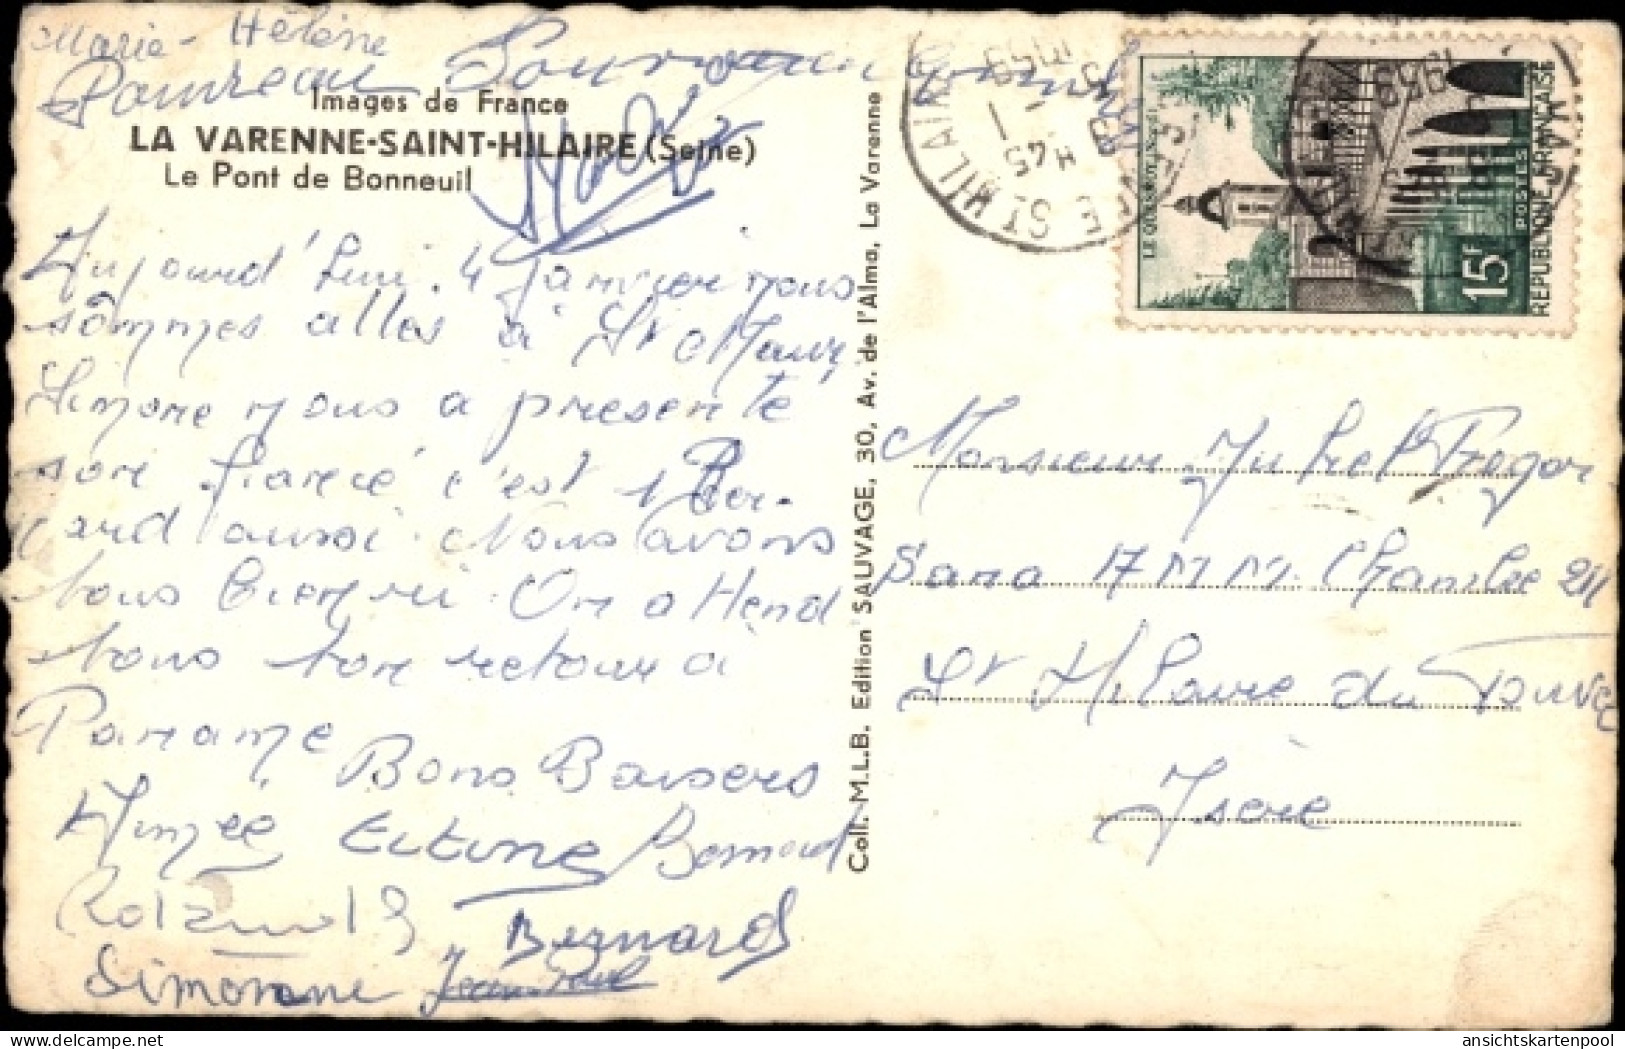 Marie-Hélène
Images de France
LA VARENNE-SAINT-HILAIRE (Seine)
Le Pont de Bonneuil
Aujourd'hui 4 janvier nous
sommes allés à St Maur
Simone nous a presenté
son fiancé c'est 1 Ber-
nard aussi. Nous avons
tous bien ri. On attend
tous ton retour à
Paname Bons Baisers
Aimée Bernard
Roland
Bernard
Simonne Jean Paul
Coll. M.L.B. Edition SAUVAGE, 30, Av. de l'Alma, La Varenne
ST HILAIRE
H45
1959
LE QUESNOY (Nord)
15F
POSTES
REPUBLIQUE FRANÇAISE
Monsieur
Sana A M M Chambre 211
St Hilaire du Touvet
Isère
ansichtskartenpool